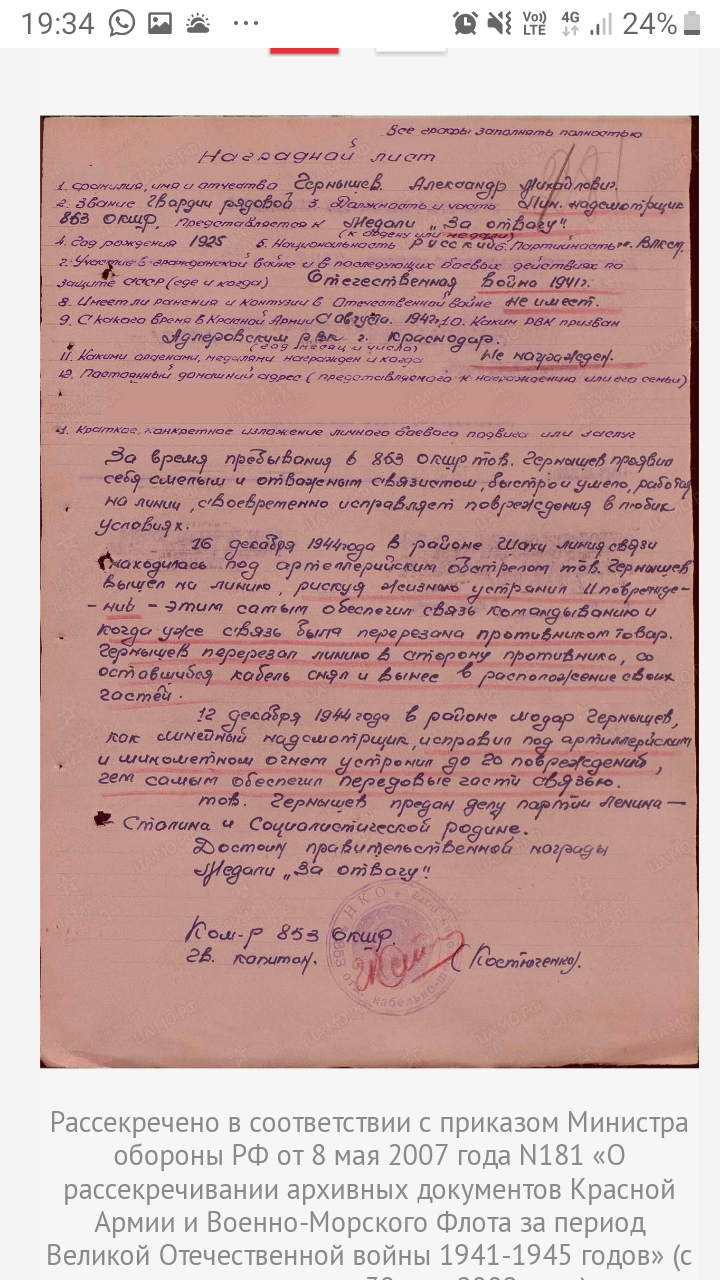 19:34
Vo)) LTE 4G 24%
Все графы заполнять полностью
Наградной лист
1. Фамилия, имя и отчество Чернышев. Александр Михайлович.
2. Звание Гвардии рядовой 3. Должность и часть Лин. надсмотрщик
853 ОКШР. Представляется к Медали „За отвагу"
(к ордену или медали)
4. Год рождения 1925 5. Национальность Русский 6. Партийность чл. ВЛКСМ.
7. Участие в гражданской войне и в последующих боевых действиях по
защите СССР (где и когда) Отечественная война 1941г.
8. Имеет ли ранения и контузии в Отечественной войне не имеет.
9. С какого время в Красной Армии С августа. 1942г. 10. Каким РВК призван
Адлеровским РВК г. Краснодар.
(год месяц и число)
11. Какими орденами, медалями награжден и когда Не награжден.
12. Постоянный домашний адрес (представляемого к награждению или его семьи)
1. Краткое, конкретное изложение личного боевого подвига или заслуг
За время пребывания в 853 ОКШР тов. Чернышев проявил
себя смелым и отважным связистом, быстро и умело, работая
на линии, своевременно исправляет повреждения в любых
условиях.
16 декабря 1944 года в районе Шахи линия связи
находилась под артеллерийским обстрелом тов. Чернышев
вышел на линию, рискуя жизнью устранил 11 поврежде-
-ний - этим самым обеспечил связь командыванию и
когда уже связь была перерезана противником товар.
Чернышев перерезал линию в сторону противника, со
оставшийся кабель снял и вынес в расположение своих
частей.
12 декабря 1944 года в районе модар Чернышев,
как линейный надсмотрщик, исправил под артиллерийским
и минометном огнем устронил до 20 повреждений,
чем самым обеспечил передовые части связью.
тов. Чернышев предан делу партии Ленина —
– Сталина и Социалистической родине.
Достоин правительственной награды
Медали „За отвагу"
Ком-р 853 ОКШР.
гв. капитан. (Костюченко).
НКО
853 отд. кабельно-ш
Рассекречено в соответствии с приказом Министра
обороны РФ от 8 мая 2007 года N181 «О
рассекречивании архивных документов Красной
Армии и Военно-Морского Флота за период
Великой Отечественной войны 1941-1945 годов» (с